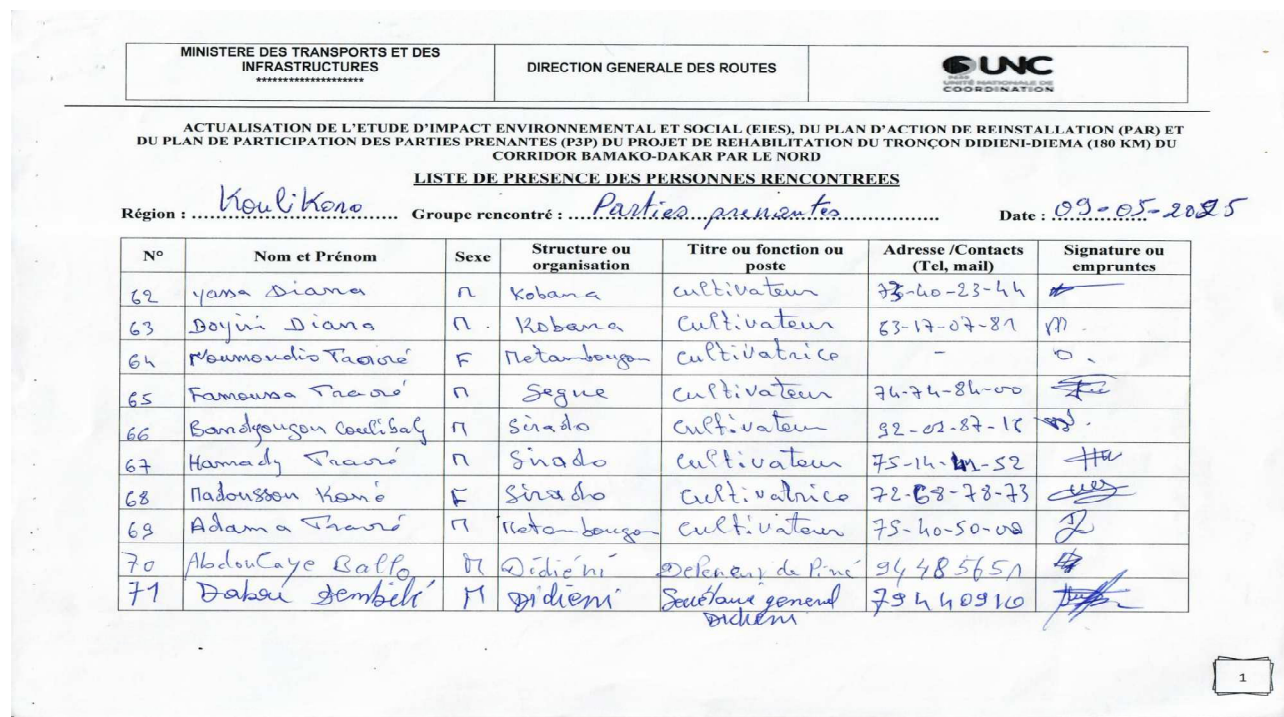 MINISTERE DES TRANSPORTS ET DES
INFRASTRUCTURES
********************
DIRECTION GENERALE DES ROUTES
UNC
UNITÉ NATIONALE DE
COORDINATION
ACTUALISATION DE L'ETUDE D'IMPACT ENVIRONNEMENTAL ET SOCIAL (EIES), DU PLAN D'ACTION DE REINSTALLATION (PAR) ET
DU PLAN DE PARTICIPATION DES PARTIES PRENANTES (P3P) DU PROJET DE REHABILITATION DU TRONÇON DIDIENI-DIEMA (180 KM) DU
CORRIDOR BAMAKO-DAKAR PAR LE NORD
LISTE DE PRESENCE DES PERSONNES RENCONTREES
Région : Koulikoro Groupe rencontré : Parties prenantes Date : 09-05-2025
N° Nom et Prénom Sexe Structure ou organisation Titre ou fonction ou poste Adresse /Contacts (Tel, mail) Signature ou empruntes
62 Diarra M Kobana cultivateur 40-23-44
63 Diarra M. Kobana Cultivateur 63-17-07-81
64 Traoré F cultivatrice -
65 Famoussa Traoré M Segue cultivateur 74-74-84-00
66 Coulibaly M Sirado cultivateur
67 Hamady Traoré M Sirado cultivateur 75-14- -52
68 Madousson Koné F Sirado cultivatrice 72-68-78-73
69 Adama Traoré M cultivateur 75-40-50-00
70 Abdoulaye Ballo M Didiéni 94485651
71 Dembélé M Didieni Secrétaire general Didieni 79440910
1